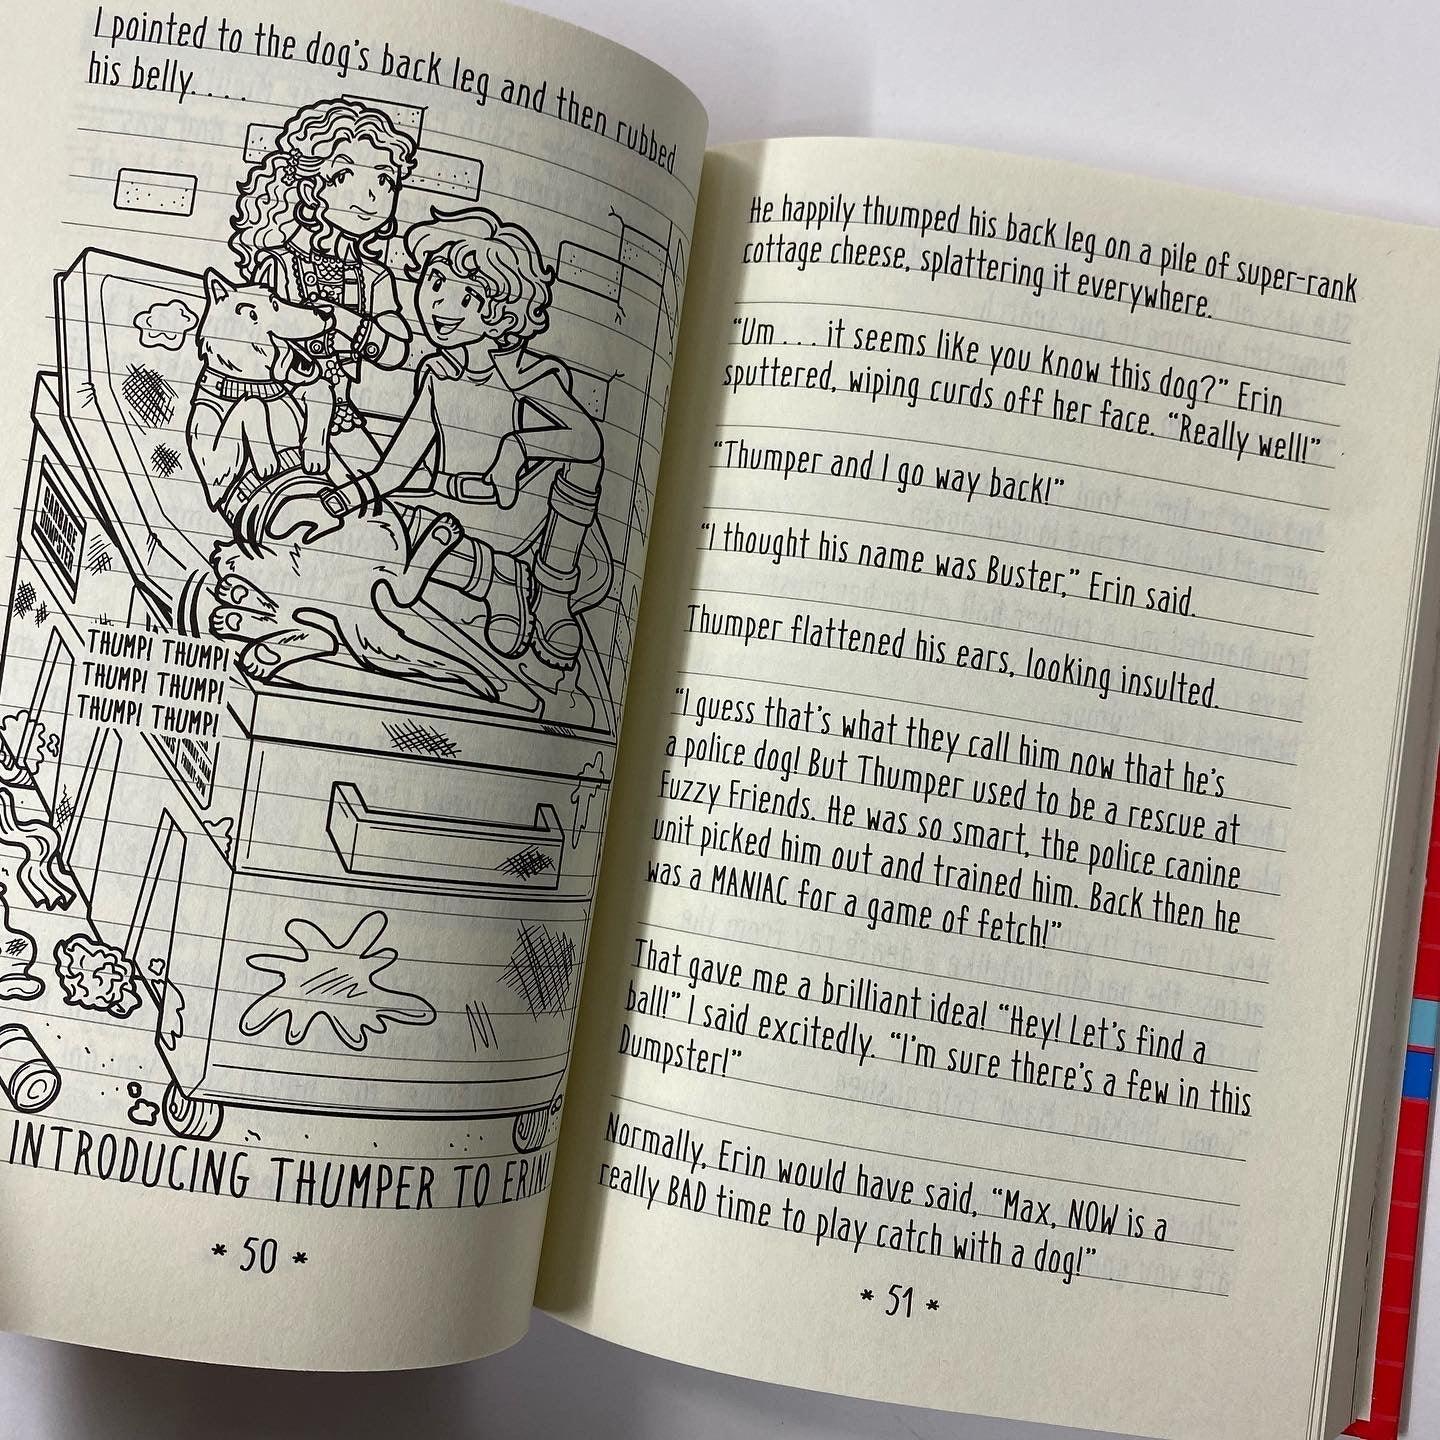 I pointed to the dog's back leg and then rubbed
his belly. . . .
GARBAGE
DUMPSTER
THUMP! THUMP!
THUMP! THUMP!
THUMP! THUMP!
INTRODUCING THUMPER TO ERIN!
* 50 *
He happily thumped his back leg on a pile of super-rank
cottage cheese, splattering it everywhere.
“Um . . . it seems like you know this dog?” Erin
sputtered, wiping curds off her face. “Really well!”
“Thumper and I go way back!”
“I thought his name was Buster,” Erin said.
Thumper flattened his ears, looking insulted.
“I guess that's what they call him now that he's
a police dog! But Thumper used to be a rescue at
Fuzzy Friends. He was so smart, the police canine
unit picked him out and trained him. Back then he
was a MANIAC for a game of fetch!”
That gave me a brilliant idea! “Hey! Let's find a
ball!” I said excitedly. “I'm sure there's a few in this
Dumpster!”
Normally, Erin would have said, “Max, NOW is a
really BAD time to play catch with a dog!”
* 51 *